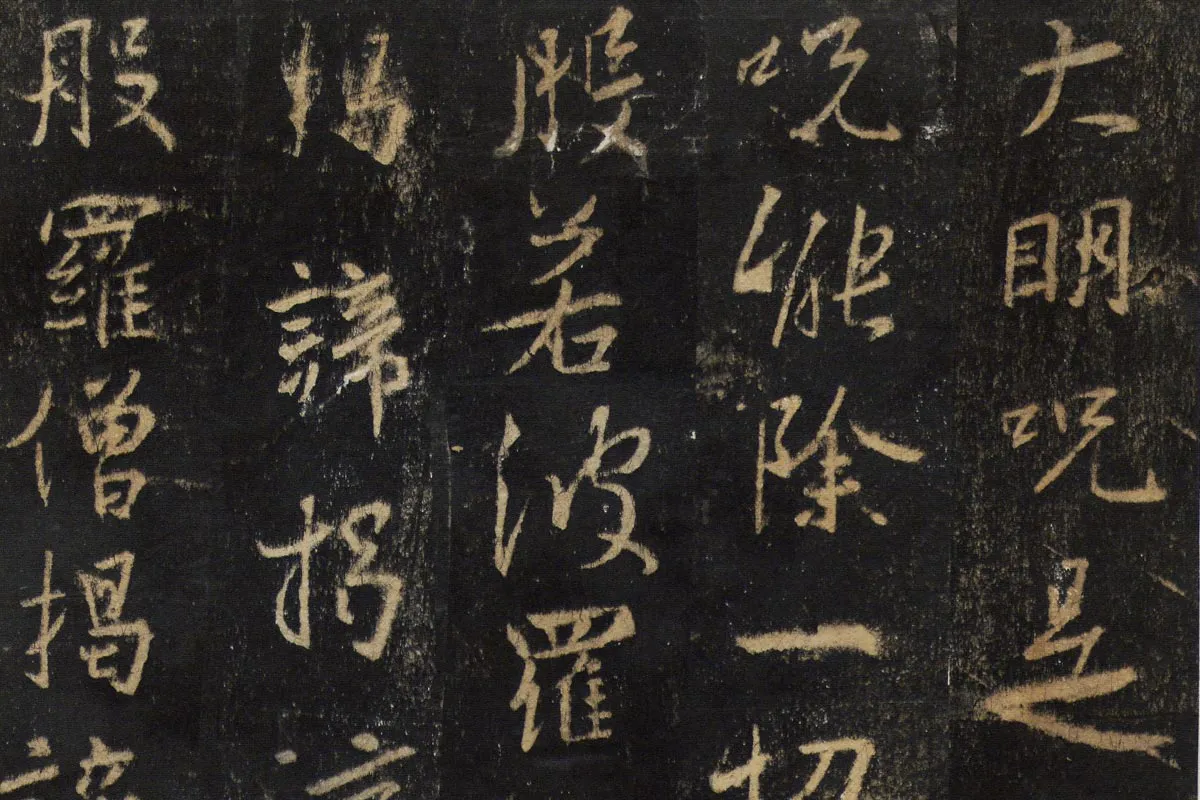 大明咒是
咒能除一切
般若波羅
揭諦揭諦
般羅僧揭諦